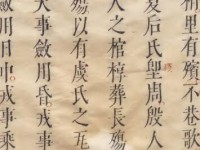 相里有殯不巷歌
夏后氏堲周殷人
人之棺椁葬長殤
殤以有虞氏之瓦
大事斂用昏戎事
斂用日中戎事乘